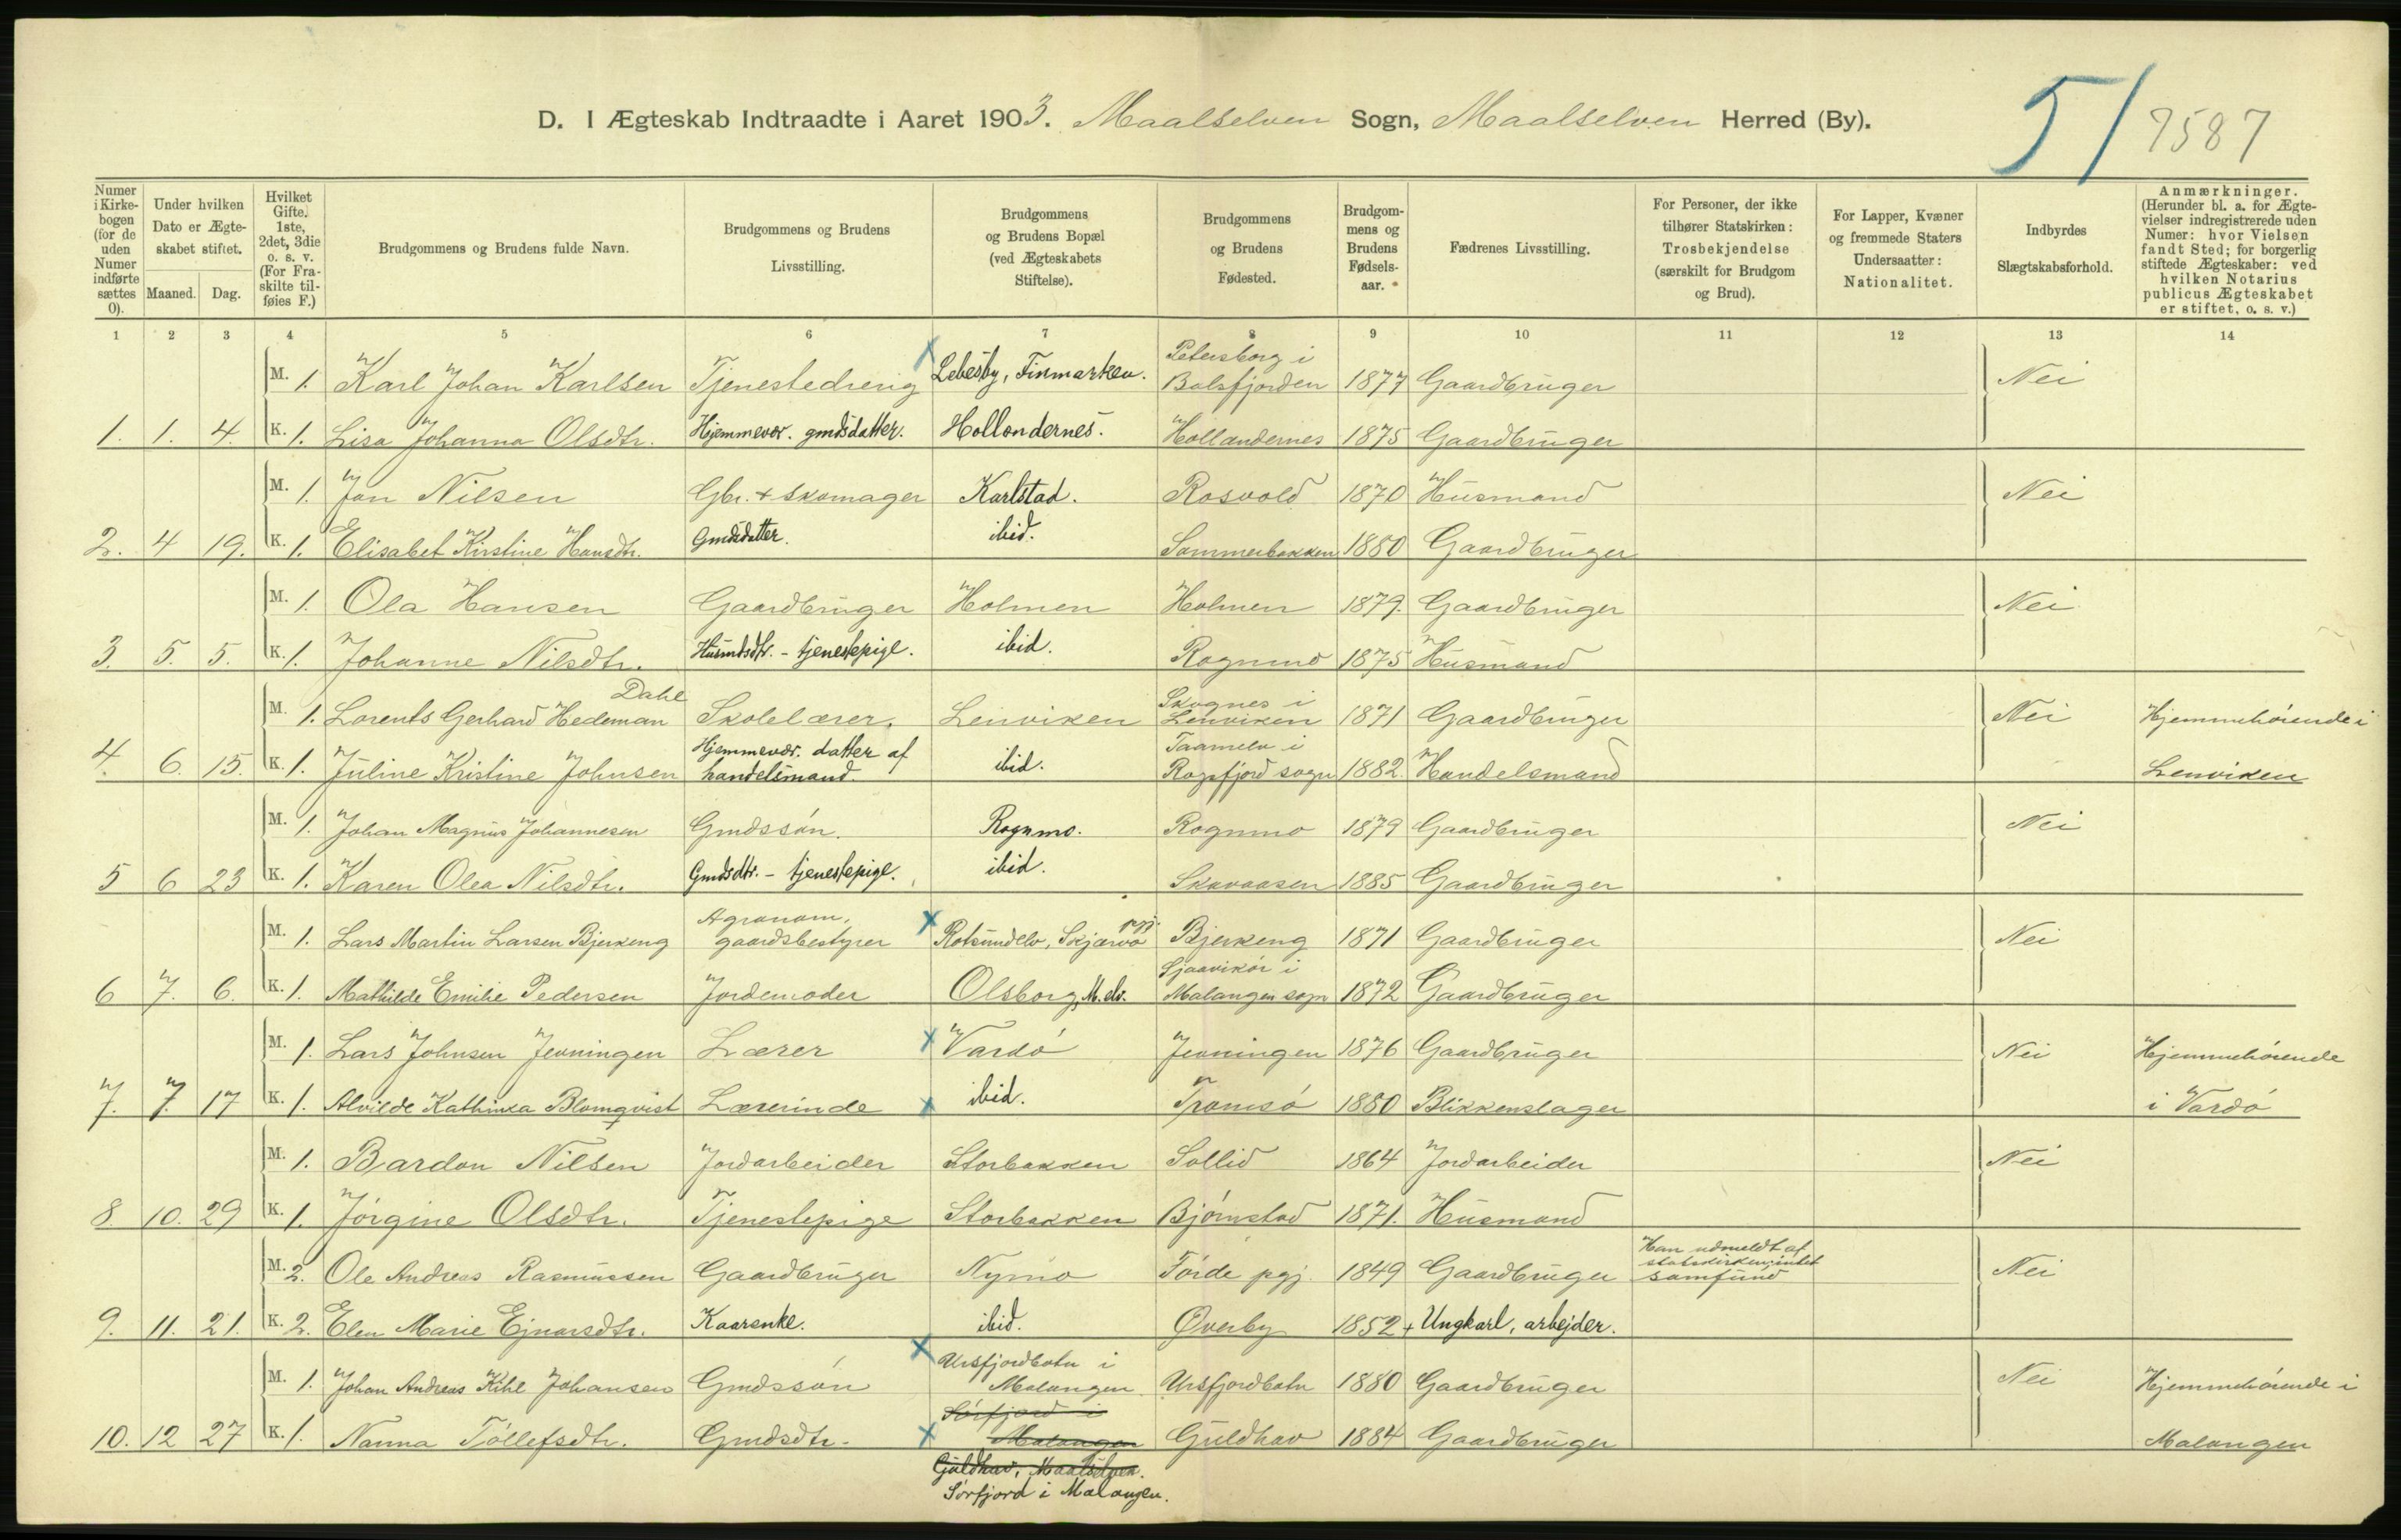 D. I Ægteskab Indtraadte i Aaret 1903. Maalselven Sogn, Maalselven Herred (By).
51
7587
Numer i Kirkebogen (for de uden Numer indførte sættes 0).
Under hvilken Dato er Ægteskabet stiftet.
Maaned.
Dag.
Hvilket Gifte. 1ste, 2det, 3die o. s. v. (For Fraskilte tilføies F.)
Brudgommens og Brudens fulde Navn.
Brudgommens og Brudens Livsstilling.
Brudgommens og Brudens Bopæl (ved Ægteskabets Stiftelse).
Brudgommens og Brudens Fødested.
Brudgommens og Brudens Fødselsaar.
Fædrenes Livsstilling.
For Personer, der ikke tilhører Statskirken: Trosbekjendelse (særskilt for Brudgom og Brud).
For Lapper, Kvæner og fremmede Staters Undersaatter: Nationalitet.
Indbyrdes Slægtskabsforhold.
Anmærkninger. (Herunder bl. a. for Ægtevielser indregistrerede uden Numer: hvor Vielsen fandt Sted; for borgerlig stiftede Ægteskaber: ved hvilken Notarius publicus Ægteskabet er stiftet, o. s. v.)
1 2 3 4 5 6 7 8 9 10 11 12 13 14
M. 1. Karl Johan Karlsen Tjenestedreng Lebesby, Finmarken. Petersborg i Balsfjorden 1877 Gaardbruger Nei
1. 1. 4. K. 1. Lisa Johanna Olsdtr. Hjemmevær. gmdsdatter. Hollendernes. Hollendernes 1875 Gaardbruger
M. 1. Jon Nilsen Gbr. + Skomager Karlstad. Rosvold 1870 Husmand Nei
2. 4 19. K. 1. Elisabet Kirstine Hansdtr. Gmdsdatter. ibid. Sommerbakken 1880 Gaardbruger
M. 1. Ola Hansen Gaardbruger Holmen Holmen 1879. Gaardbruger Nei
3. 5. 5. K. 1. Johanne Nilsdtr. Husmdsdtr. - tjenestepige. ibid. Rognmo 1875 Husmand
M. 1. Lorents Gerhard Hedeman Dahl Skolelærer. Lenviken Skognes i Lenviken 1871 Gaardbruger Nei Hjemmehörende i
4. 6. 15. K. 1. Juline Kristine Johnsen Hjemmevær. datter af handelsmand ibid. Taamelv i Rossfjord sogn 1882. Handelsmand Lenviken
M. 1. Johan Magnus Johannesen Gmdssön. Rognmo. Rognmo 1879 Gaardbruger Nei
5 6 23 K. 1. Karen Olea Nilsdtr. Gmdsdtr. - tjenestepige. ibid. Skavaasen 1885 Gaardbruger
M. 1. Lars Martin Larsen Bjerkeng Agronom, gaardsbestyrer Rotsundelv, Skjærvö pgj. Bjerkeng 1871 Gaardbruger Nei
6 7. 6. K. 1. Mathilde Emilie Pedersen Jordemoder Olsborg, M.elv. Sjaavikör i Malangen sogn 1872 Gaardbruger
M. 1. Lars Johnsen Jevningen Lærer Vardö Jevningen 1876 Gaardbruger Nei Hjemmehörende
7. 7. 17 K. 1. Alvilde Kathinka Blomqvist Lærerinde ibid. Tromsö 1880 Blikkenslager i Vardö
M. 1. Bardon Nilsen Jordarbeider Storbakken Sollid 1864 Jordarbeider Nei
8. 10. 29 K. 1. Jörgine Olsdtr. Tjenestepige Storbakken Björnstad 1871. Husmand
M. 2. Ole Andreas Rasmussen Gaardbruger Nymo Förde pgj. 1849 Gaardbruger Han udmeldt af statskirken, intet samfund Nei
9. 11. 21. K. 2. Elen Marie Ejnarsdtr. Kaarenke. ibid. Øverby 1852 + Ungkarl, arbejder.
M. 1. Johan Andreas Kihl Johansen Gmdssön Ursfjordbotn i Malangen Ursfjordbotn 1880 Gaardbruger Nei Hjemmehörende i
10. 12 27 K. 1. Nanna Töllefsdtr. Gmdsdtr. Sörfjord i Malangen Guldhav 1884 Gaardbruger Malangen
Guldhav, Maalselven.
Sörfjord i Malangen.